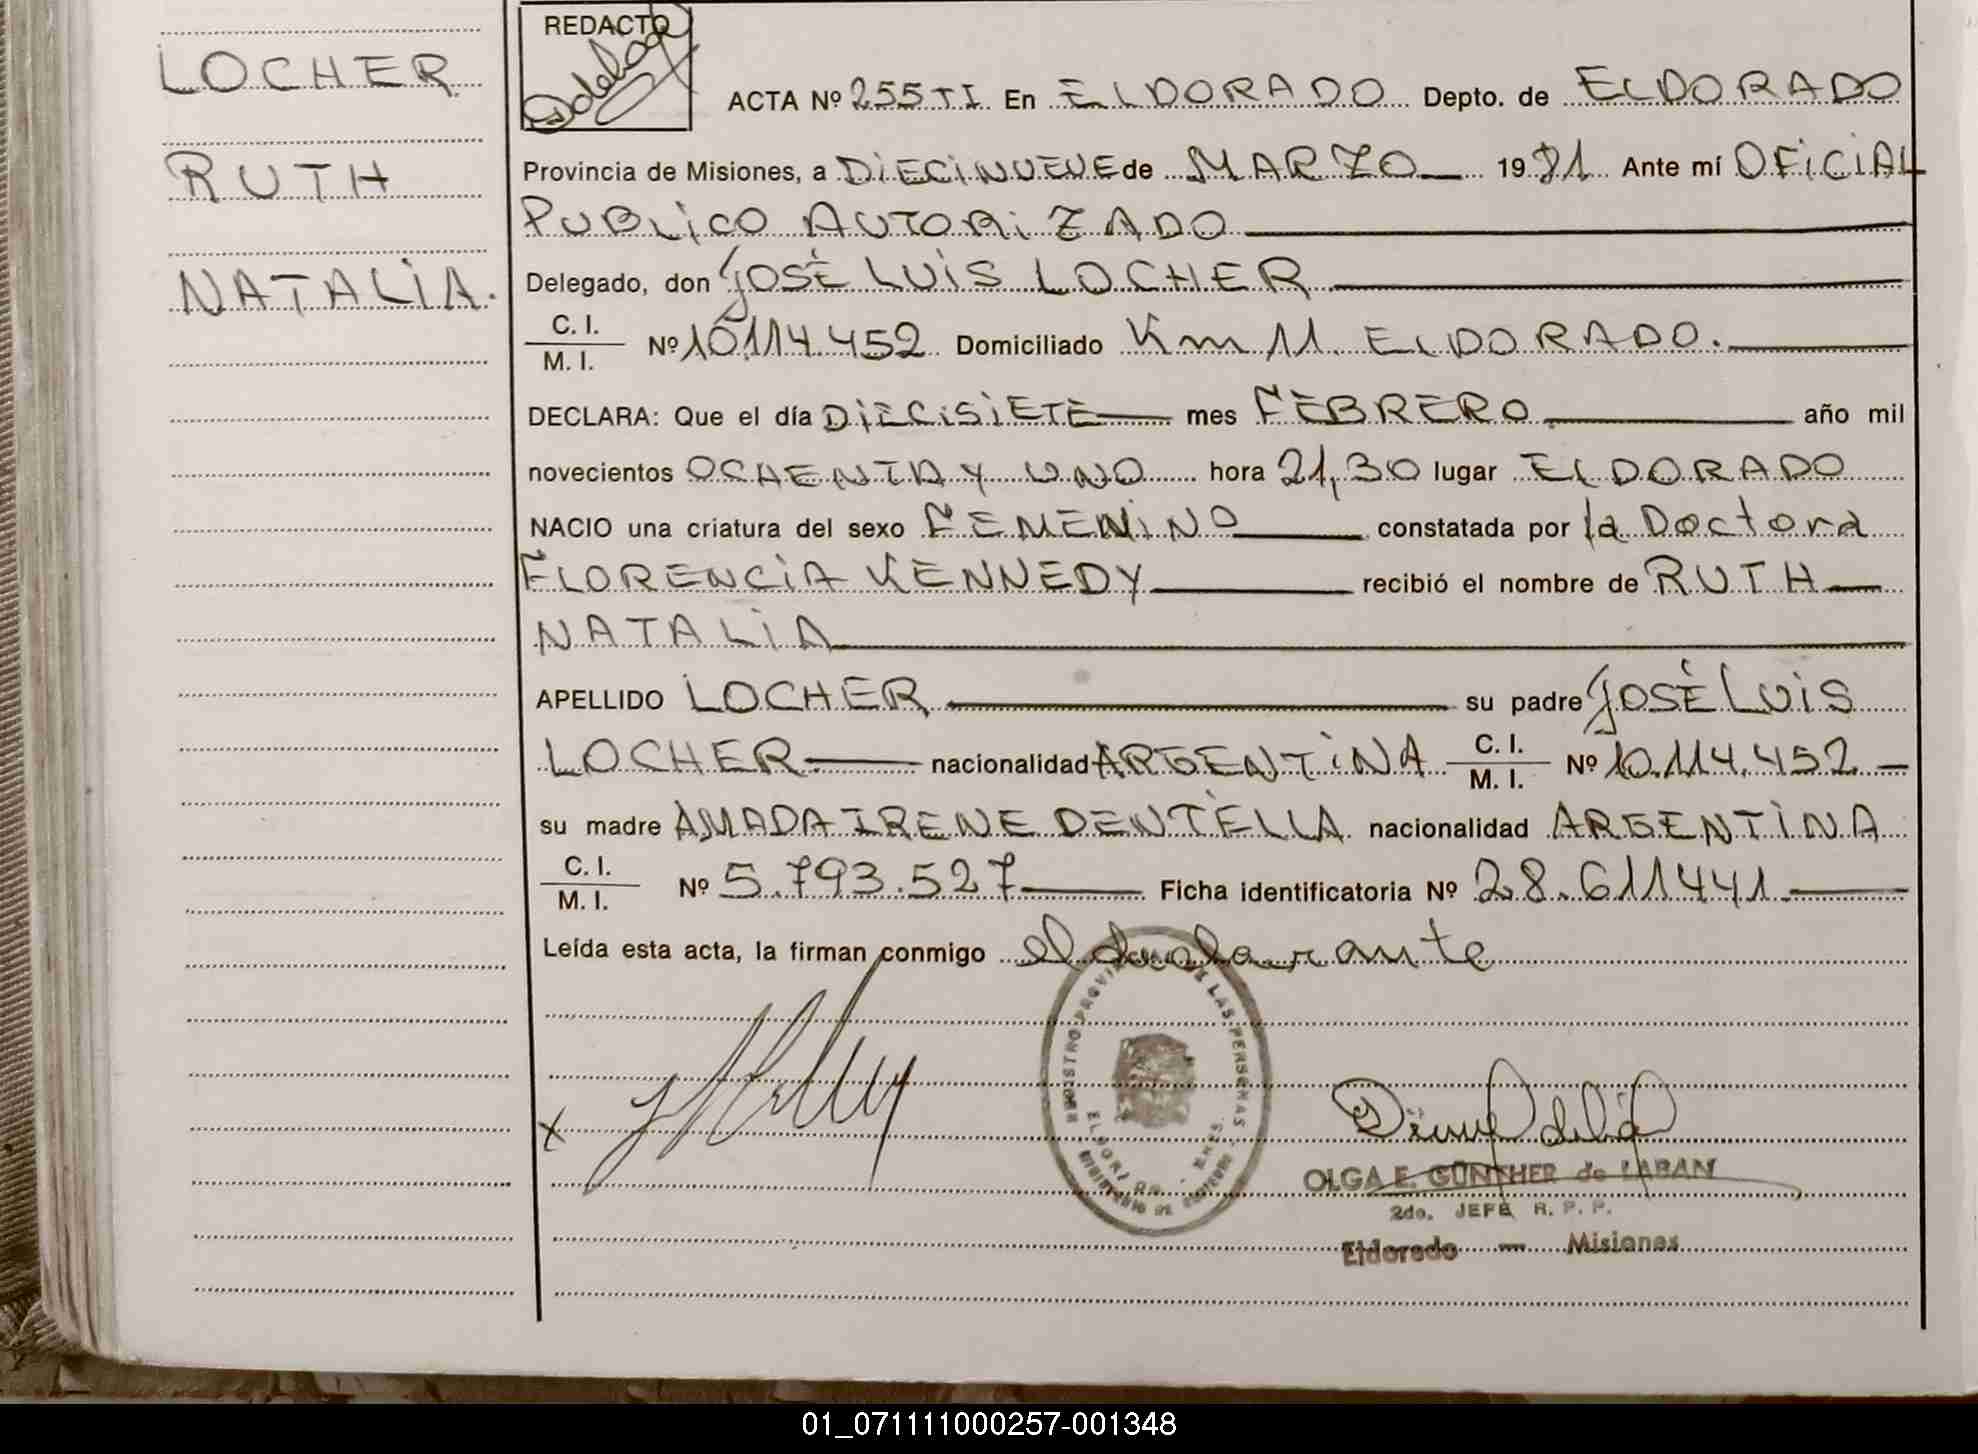 LOCHER
RUTH
NATALIA.
REDACTO
ACTA Nº 255 TI En ELDORADO Depto. de ELDORADO
Provincia de Misiones, a DIECINUEVE de MARZO 1981 Ante mí OFICIAL
PUBLICO AUTORIZADO
Delegado, don JOSÉ LUIS LOCHER
C. I.
M. I. Nº 10.114.452 Domiciliado Km 11. ELDORADO.
DECLARA: Que el día DIECISIETE mes FEBRERO año mil
novecientos OCHENTA Y UNO hora 21,30 lugar ELDORADO
NACIO una criatura del sexo FEMENINO constatada por la Doctora
FLORENCIA KENNEDY recibió el nombre de RUTH
NATALIA
APELLIDO LOCHER su padre JOSÉ LUIS
LOCHER nacionalidad ARGENTINA C. I. M. I. Nº 10.114.452
su madre AMADA IRENE DENTELLA nacionalidad ARGENTINA
C. I.
M. I. Nº 5.793.527 Ficha identificatoria Nº 28.611441
Leída esta acta, la firman conmigo el declarante
X
REGISTRO PROVINCIAL DE LAS PERSONAS
ELDORADO MNES.
OLGA E. GÜNTHER de LABAN
2do. JEFE R. P. P.
Eldorado — Misiones
01_071111000257-001348